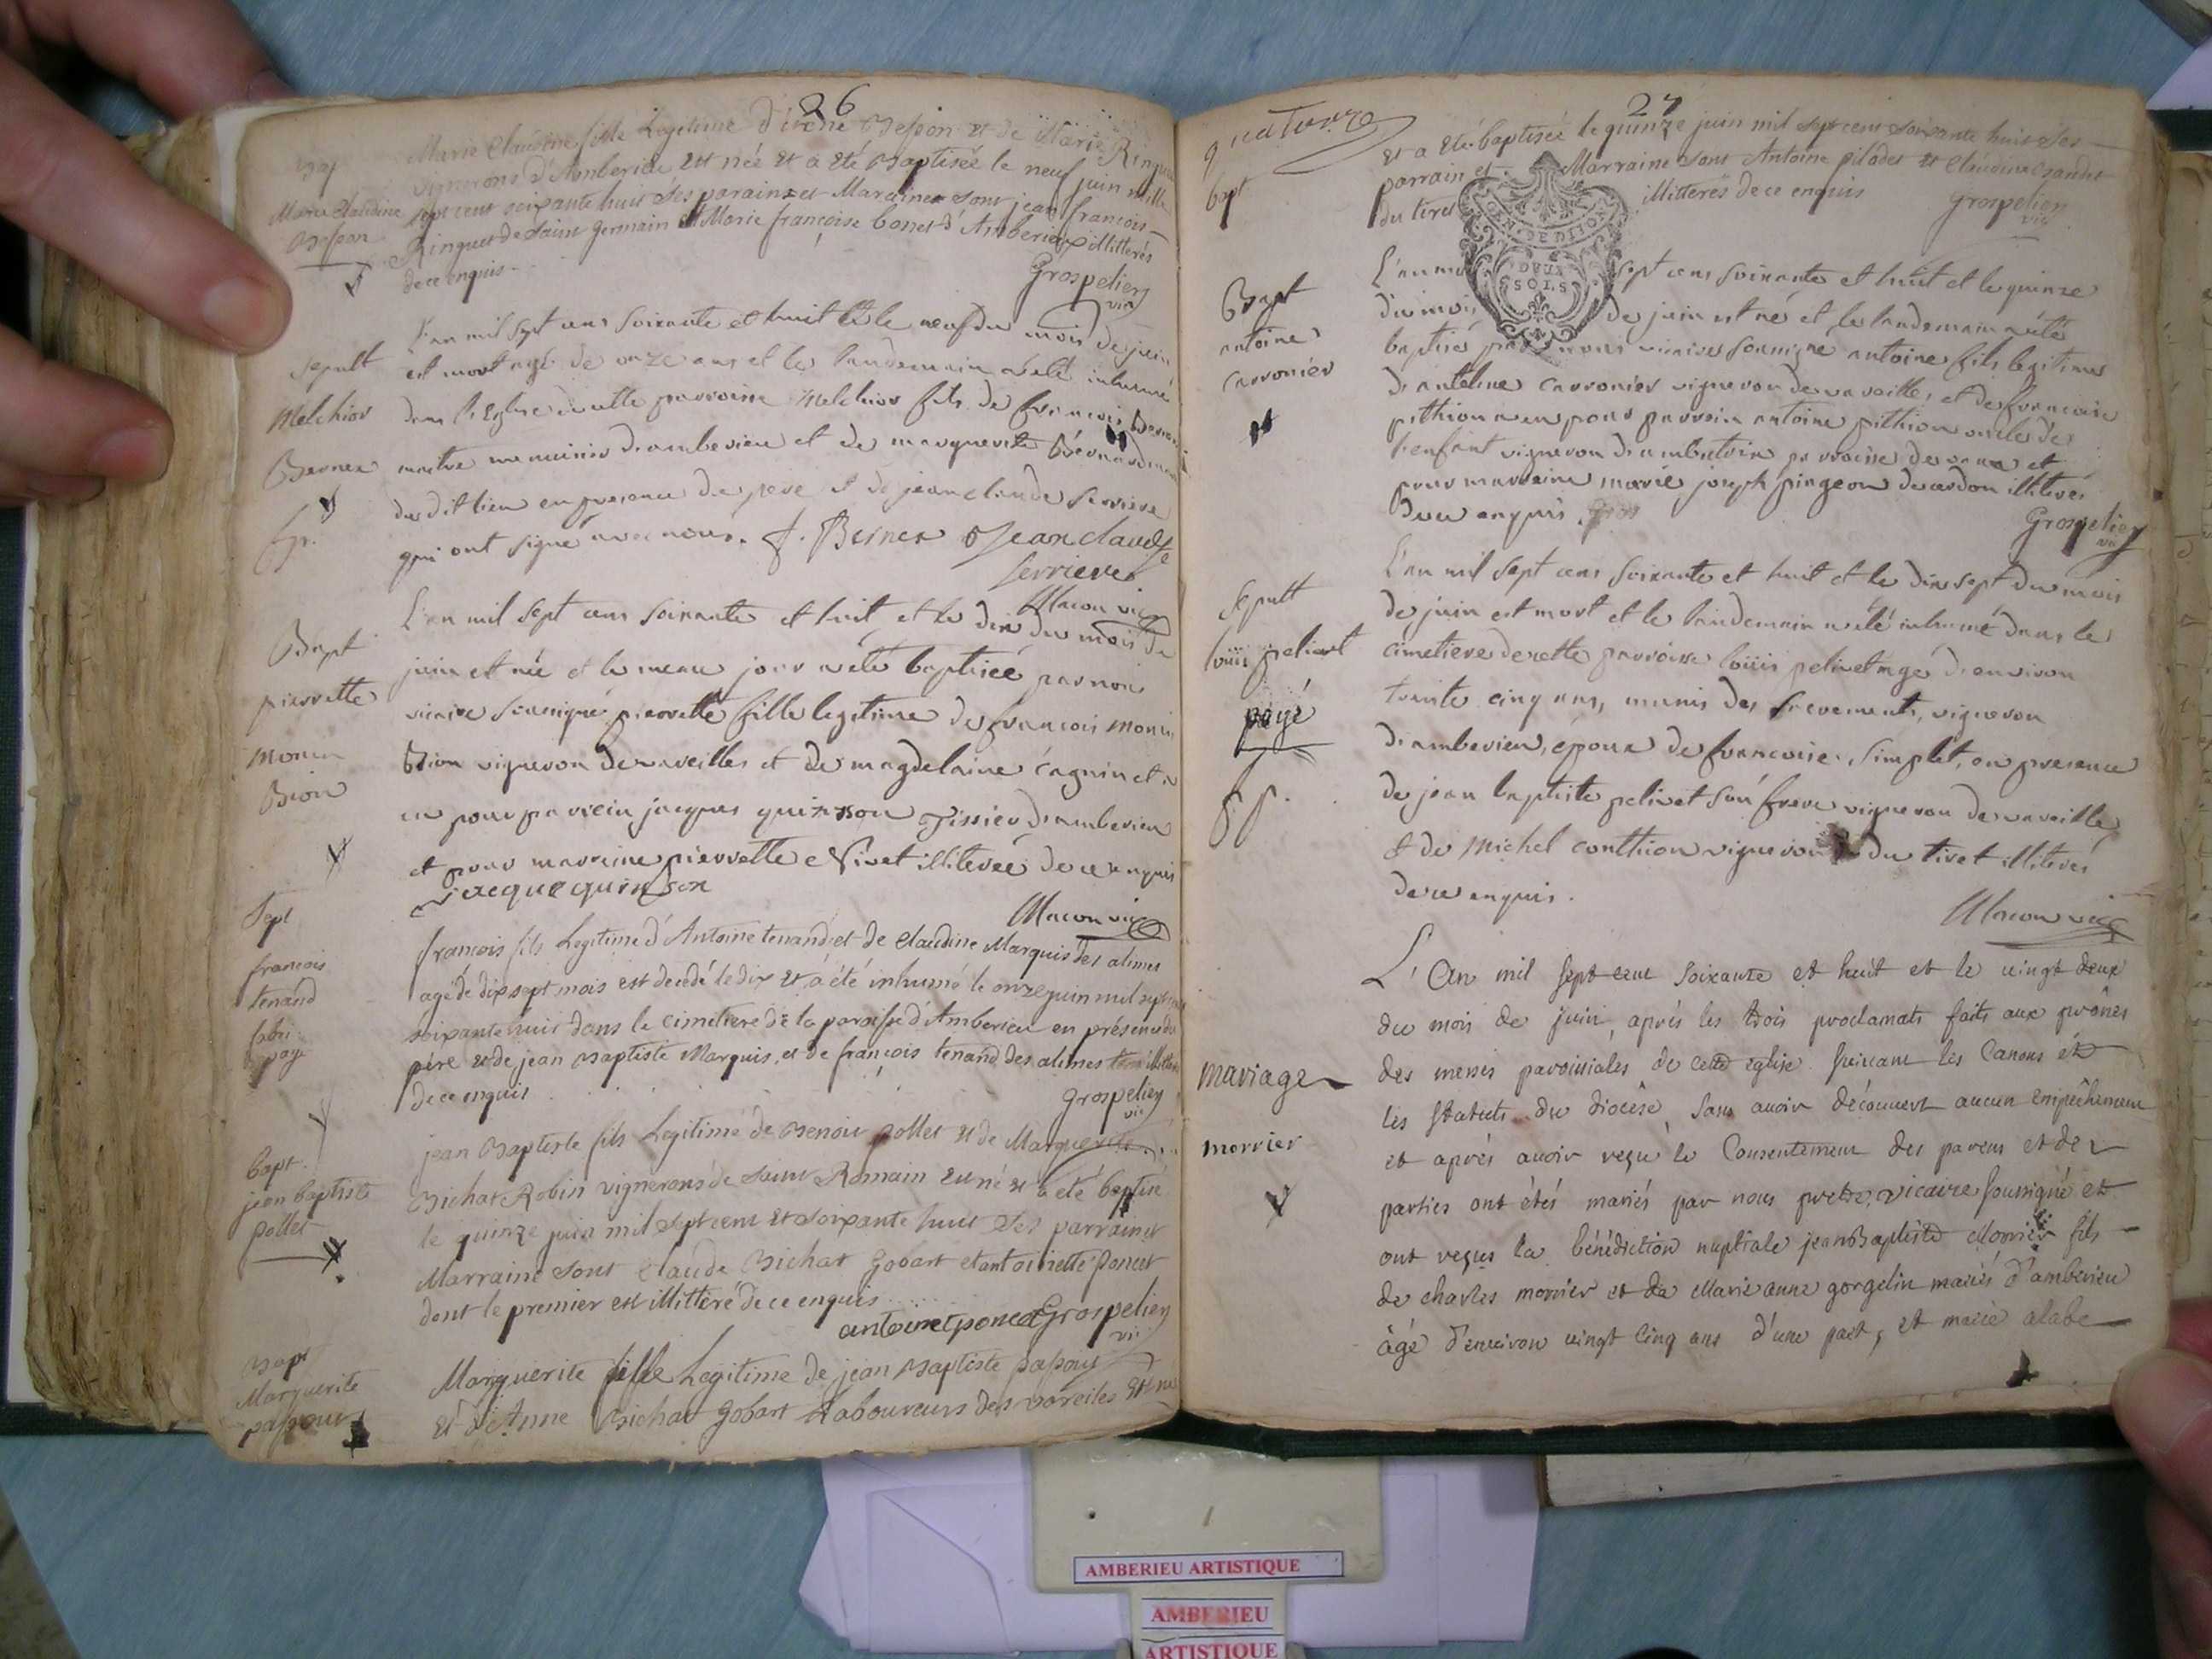 26
Bap
Marie Claudine
Besson
Marie Claudine fille Legitime d'irené Besson et de Marie Ringuet
vignerons d'Amberieu est née et a été Baptisée le neuf juin mille
sept cent soixante huit ses parains et Maraines sont jean françois
Ringuet de saint germain et Marie françoise bonet d'Amberieux illitterés
de ce enquis
Grospelier
vic
Sepult
Melchior
Berner
fp.
L'an mil sept cens soixante et huit et le neuf du mois de juin
est mort agé de onze ans et le landemain a été inhumé
dans l'Eglise de cette parroisse Melchior fils de françois Berner
maitre menuisier d'amberieu et de marguerite
du dit lieu en presence du pere et de jean claude serriere
qui ont signé avec nous. f. Berner Jean claude
serriere
Macon vic
Bapt
pierrette
Monin
Bion
L'an mil sept cens soixante et huit et le dix du mois de
juin est née et le meme jour a été baptisée par nou
vicaire soussigné pierrette fille legitime de françois monin
Bion vigneron de vareilles et de magdelaine cagnin et a
eu pour parrein jacques quinson Tissier d'amberieu
et pour marraine pierrette Nivet illiterée de ce enquis
jacque quinson
Macon vic
Sept
francois
tenand
fabri
paye
françois fils Legitime d'Antoine tenand et de Claudine Marquis des alimes
agé de dix sept mois est decedé le dix et a été inhumé le onze juin mil sept cent
soixante huit dans le cimetiere de la paroisse d'Amberieu en présence du
pére et de jean Baptiste Marquis, et de françois tenand des alimes
de ce enquis
Grospelier
vic
bapt.
jean baptiste
pollet
jean Baptiste fils Legitime de Benoit pollet et de Marguerite
Bichat Robin vignerons de saint Romain est né et a été baptisé
le quinze juin mil sept cent et soixante huit ses parrain et
Marraine sont Claude Bichat Gobart et antoinette poncet
dont le premier est illittéré de ce enquis
antoinet poncet Grospelier
vic
Bapt
Marguerite
passour
Marguerite fille Legitime de jean Baptiste
et d'Anne Bichat Gobart Laboureurs des vareilles est née
27
quatorze
bapt
et a été baptisée le quinze juin mil sept cent soixante huit ses
parrain et Marraine sont Antoine pilodet et Claudine
du tiret illitterés de ce enquis
Grospelier
vic
GEN. DE DIJON
DEUX
SOLS
Bapt
antoine
carronier
L'an mil sept cens soixante et huit et le quinze
du mois de juin est né et le landemain a été
baptisé par nous vicaire soussigné antoine fils legitime
d'antelme carronier vigneron de vareille, et de françoise
pithion a eu pour parrein antoine pithion oncle de
l'enfant vigneron d'ambutrix parroisse de vaux et
pour marraine marie joseph pingeon de cerdon illiterés
De ce enquis
Grospelier
vic
Sepult
loüis pelivet
payé
fp.
L'an mil sept cens soixante et huit et le dix sept du mois
de juin est mort et le landemain a été inhumé dans le
cimetiere de cette parroisse loüis pelivet agé d'environ
trente cinq ans, munis des sacrements, vigneron
d'amberieu, epoux de francoise simplet, en presence
de jean baptiste pelivet son frere vigneron de vareille
et de Michel conthion vigneron du tiret illiterés
de ce enquis.
Macon vic
mariage
morrier
L'An mil sept cent soixante et huit et le vingt deux
du mois de juin, aprés les trois proclamats faits aux prônes
des messes paroissiales de cette église suivant les Canons et
les statuts du diocèse sans avoir découvert aucun empêchement
et aprés avoir reçu le Consentement des parens et des
parties ont étés mariés par nous pretre vicaire soussigné et
ont reçus la bénédiction nuptiale jean Baptiste Morrier fils
de charles morrier et de Marie anne gorgelin mariés d'amberieu
âgé d'environ vingt cinq ans d'une part, et marie alabe
AMBERIEU ARTISTIQUE
AMBERIEU
ARTISTIQUE